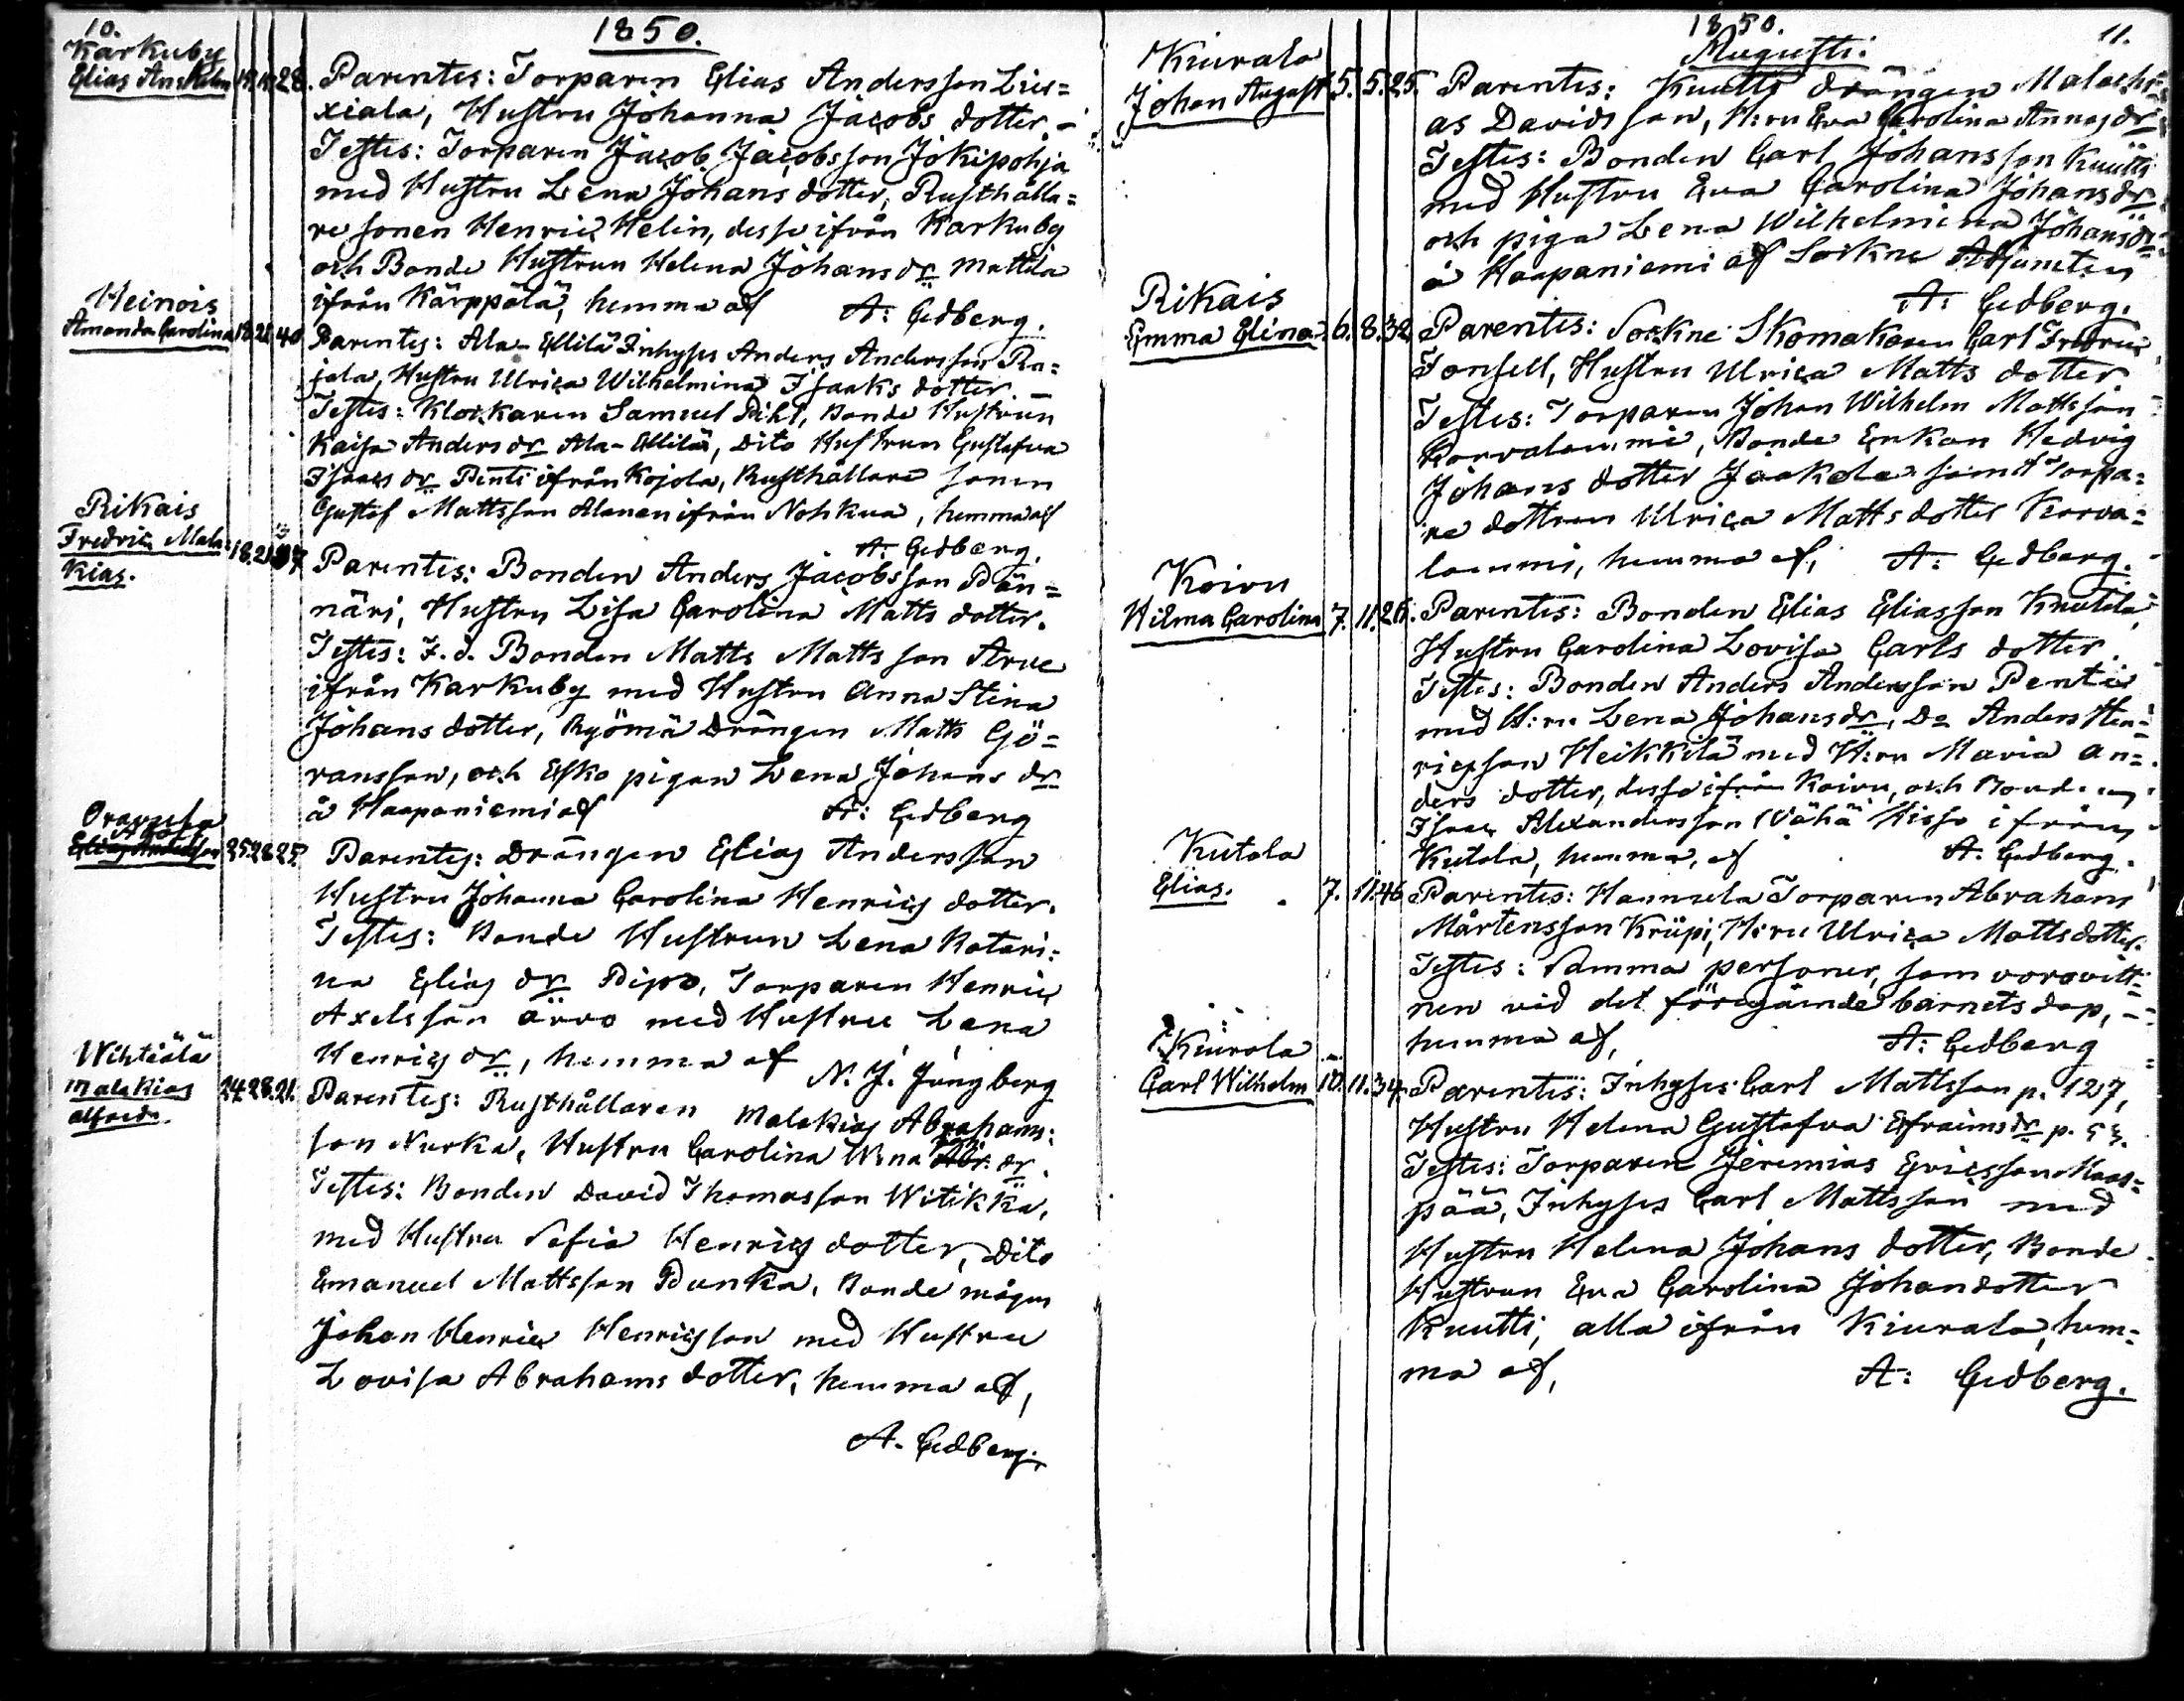 10.
1850.
Karkuby
Elias Anshelm 14. 14. 28.
Parentes: Torparen Elias Andersson Lies=
xiala, Hustru Johanna Jacobs dotter. -
Testes: Torparen Jacob Jacobsson Jokipohja
med Hustru Lena Johans dotter, Rusthålla=
re sonen Henric Helin, desse ifrån Karkuby
och Bonde Hustrun Helena Johans dr Mattila
ifrån Kärppälä, hemma af A: Gedberg.
Heinois
Amanda Carolina 18. 21. 40
Parentes: Ala-Ellilä Inhyses Anders Andersson Ra=
jala, Hustru Ulrica Wilhelmina Isaaks dotter. -
Testes: Klockaren Samuel Pihl, Bonde Hustrun
Kaisa Anders dr Ala-Ellilä, Dito Hustrun Gustafva
Isaacs dr Penti ifrån Kojola, Rusthållare sonen
Gustaf Mattsson Alanen ifrån Nohkua, hemma af
A: Gedberg.
Rikais
Fredric Mala=
kias. 18. 21.
Parentes: Bonden Anders Jacobsson Pän=
näri, Hustru Lisa Carolina Matts dotter.
Testes: F. d. Bonden Matts Matts son Arve
ifrån Karkuby med Hustru Anna Stina
Johans dotter, Ryömä Drängen Matts Gö=
ransson, och Esko pigan Lena Johans dr
å Haapaniemi af A: Gedberg
25. 28. 25.
Parentes: Drängen Elias Andersson
Hustru Johanna Carolina Henrics dotter.
Testes: Bonde Hustrun Lena Katari=
na Elias dr Pipo, Torparen Henric
Axelsson Arvo med Hustru Lena
Henrics dr, hemma af N. J. Ljungberg
Wihtiälä
Malakias
Alfred. 24. 28. 21.
Parentes: Rusthållaren Malakias Abrahams=
son Nurka, Hustru Carolina W:na dr.
Testes: Bonden David Thomasson Witikka,
med Hustru Sofia Henrics dotter, Dito
Emanuel Mattsson Punka, Bonde mågen
Johan Henric Henricsson med Hustru
Lovisa Abrahams dotter, hemma af,
A. Gedberg.
1850.
11.
Augusti.
Kiurala
Johan August 5. 5. 25.
Parentes: Knutts drängen Malachi=
as Davidsson, H:ru Eva Carolina Annas dr
Testes: Bonden Carl Johansson Knutti
med Hustru Eva Carolina Johans dr
och piga Lena Wilhelmina Johans dr
å Haapaniemi af Sockne Adjuncten
A: Gedberg.
Rikais
Emma Elina. 6. 8. 32.
Parentes: Sockne Skomakaren Carl Fredric
Tonsell, Hustru Ulrica Matts dotter.
Testes: Torparen Johan Wilhelm Mattsson
Korvalammi, Bonde Enkan Hedvig
Johans dotter Jaakola samt Torpa=
re dottren Ulrica Matts dotter Korva=
lammi, hemma af, A: Gedberg.
Koivu
Hilma Carolina 7. 11. 26.
Parentes: Bonden Elias Eliasson Knutila,
Hustru Carolina Lovisa Carls dotter.
Testes: Bonden Anders Andersson Penti
med H:ru Lena Johans dr, Do Anders Hen=
ricsson Heikkilä med H:ru Maria An=
ders dotter, desse ifrån Koivu, och Bonden
Isaac Alexandersson Wähä Hisso ifrån
Kutala, hemma, af A. Gedberg.
Kutala
Elias. 7. 11. 46
Parentes: Hannula Torparen Abraham
Mårtensson Krüpi, H:ru Ulrica Matts dotter.
Testes: Samma personer, som voro vitt=
nen vid det föregående barnets dop, -
hemma af, A: Gedberg
Kiurala
Carl Wilhelm 10. 11. 34.
Parentes: Inhyses Carl Mattsson p. 127,
Hustru Helena Gustafva Efraims dr p. 53.
Testes: Torparen Jeremias Ericsson Maas=
pää, Inhyses Carl Mattsson med
Hustru Helena Johans dotter, Bonde
Hustrun Eva Carolina Johansdotter
Knutti, alla ifrån Kiurala, hem=
ma af, A: Gedberg.